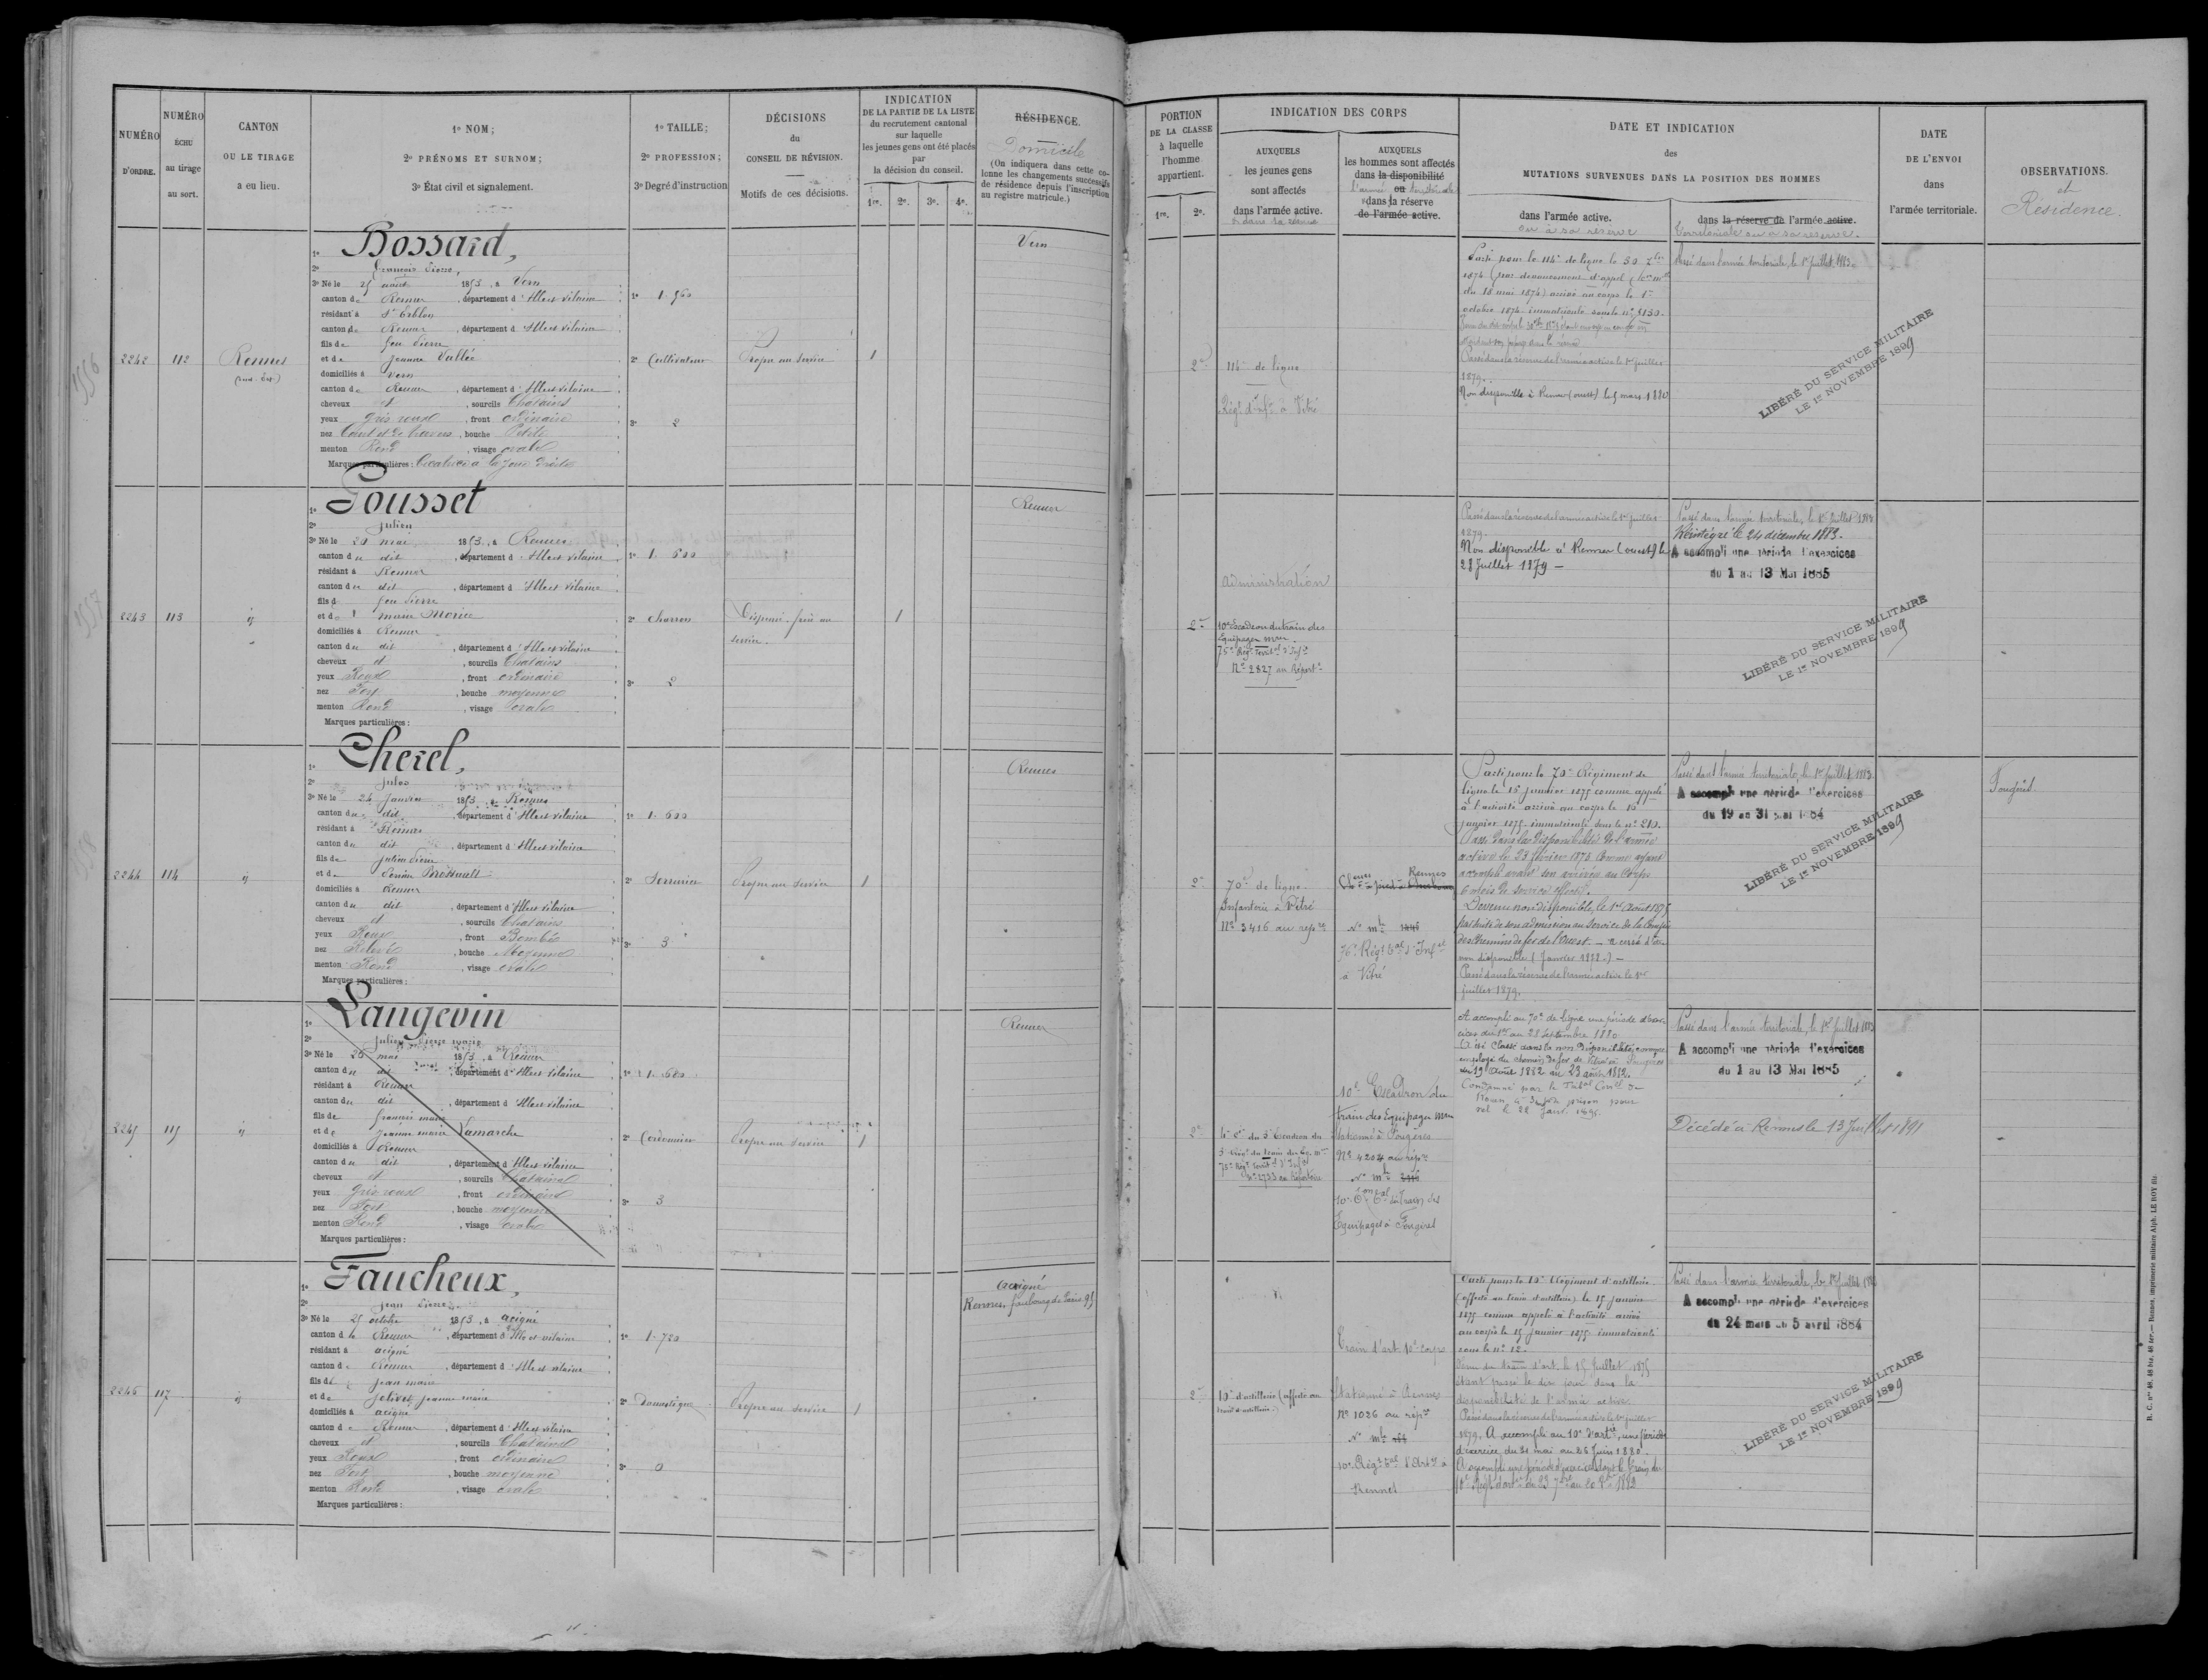 NUMÉRO
D'ORDRE.
NUMÉRO
ÉCHU
au tirage
au sort.
CANTON
OU LE TIRAGE
a eu lieu.
1º NOM;
2º PRÉNOMS ET SURNOM;
3º État civil et signalement.
1º TAILLE;
2º PROFESSION;
3º Degré d'instruction
DÉCISIONS
du
CONSEIL DE RÉVISION.
Motifs de ces décisions.
INDICATION
DE LA PARTIE DE LA LISTE
du recrutement cantonal
sur laquelle
les jeunes gens ont été placés
par
la décision du conseil.
1re. 2e. 3e. 4e.
RÉSIDENCE.
Domicile
(On indiquera dans cette co-
lonne les changements successifs
de résidence depuis l'inscription
au registre matricule.)
2242 112 Rennes
1º Bossard,
2º François Pierre,
3º Né le 25 août 1853, à Vern
canton de Rennes, département d'Ille et vilaine
résidant à St Erblon
canton de Rennes, département d'Ille et vilaine
fils de feu Pierre
et de Jeanne Vallée
domiciliés à Vern
canton de Rennes, département d'Ille et vilaine
cheveux et, sourcils Chatains
yeux gris roux, front ordinaire
nez, bouche Petite
menton Rond, visage ovale
Marques particulières: Cicatrice à la joue droite
1º 1. 560
2º Cultivateur
3º 2
Propre au service
1
Vern
2243 113 id
1º Pousset
2º Julien
3º Né le 20 mai 1853, à Rennes
canton du dit, département d'Ille et vilaine
résidant à Rennes
canton du dit, département d'Ille et vilaine
fils d feu Pierre
et de marie Morice
domiciliés à Rennes
canton du dit, département d'Ille et vilaine
cheveux et, sourcils Chatains
yeux Roux, front ordinaire
nez Fort, bouche moyenne
menton Rond, visage ovale
Marques particulières:
1º 1. 600
2º charron
3º 2
service.
1
Rennes
2244 114 id
1º Cherel,
2º Jules
3º Né le 24 Janvier 1853, à Rennes
canton du dit, département d'Ille et vilaine
résidant à Rennes
canton du dit, département d'Ille et vilaine
fils de Julien Pierre
et de
domiciliés à Rennes
canton du dit, département d'Ille et vilaine
cheveux et, sourcils Chatains
yeux Roux, front Bombé
nez Relevé, bouche Moyenne
menton Rond, visage ovale
Marques particulières:
1º 1. 600
2º Serrurier
3º 3
Propre au service
1
Rennes
2245 115 id
1º Langevin
2º Julien Pierre marie
3º Né le 20 mai 1853, à Rennes
canton du dit, département d'Ille et vilaine
résidant à Rennes
canton du dit, département d'Ille et vilaine
fils de François marie
et de Jeanne marie Lamarche
domiciliés à Rennes
canton du dit, département d'Ille et vilaine
cheveux et, sourcils Chatains
yeux gris roux, front ordinaire
nez Fort, bouche moyenne
menton Rond, visage ovale
Marques particulières:
1º 1. 680
2º Cordonnier
3º 3
Propre au service
1
Rennes
2246 117 id
1º Faucheux,
2º Jean Pierre
3º Né le 25 octobre 1853, à acigné
canton de Rennes, département d'Ille et vilaine
résidant à acigné
canton de Rennes, département d'Ille et vilaine
fils de Jean marie
et de Jeanne marie
domiciliés à acigné
canton de Rennes, département d'Ille et vilaine
cheveux et, sourcils Chatains
yeux Roux, front ordinaire
nez Fort, bouche moyenne
menton Rond, visage ovale
Marques particulières:
1º 1. 720
2º Domestique
3º 0
Propre au service
1
acigné
Rennes, faubourg de Paris 95
PORTION
DE LA CLASSE
à laquelle
l'homme
appartient.
1re. 2e.
INDICATION DES CORPS
AUXQUELS
les jeunes gens
sont affectés
dans l'armée active.
AUXQUELS
les hommes sont affectés
dans la disponibilité
l'armée ou territoriale
dans la réserve
de l'armée active.
DATE ET INDICATION
des
MUTATIONS SURVENUES DANS LA POSITION DES HOMMES
dans l'armée active.
ou à sa réserve
dans la réserve de l'armée active.
territoriale ou à sa réserve.
DATE
DE L'ENVOI
dans
l'armée territoriale.
OBSERVATIONS.
et
Résidence.
2e
114e de ligne
Régt d'infie à Vitré
Parti pour le 114e de ligne le 30 7bre
1874 (par devancement d'appel
du 18 mai 1874) arrivé au corps le 1er
octobre 1874 immatriculé sous le nº 4130.
Passé dans la réserve de l'armée active le 1er juillet
1879.
Non disponible à Rennes (ouest) le 5 mars 1880
Passé dans l'armée territoriale, le 1er juillet 1883.
LIBÉRÉ DU SERVICE MILITAIRE
LE 1er NOVEMBRE 1899
2e
administration
10e Escadron du train des
Equipages mres.
75e Régt Territal d'Infie
Nº 2827 au Répertre
Passé dans la réserve de l'armée active le 1er juillet
1879.
Non disponible à Rennes (ouest) le
28 Juillet 1879 —
Passé dans l'armée territoriale, le 1er Juillet 1883
Réintégré le 24 décembre 1883.
A accompli une période d'exercices
du 1 au 13 Mai 1885
LIBÉRÉ DU SERVICE MILITAIRE
LE 1er NOVEMBRE 1899
2e
70e de ligne
Infanterie à Vitré
Nº 3416 au répre
Rennes
Nº mle
76e Régt tal d'Infie
à Vitré
Parti pour le 70e Régiment de
ligne le 16 janvier 1875 comme appelé
à l'activité arrivé au corps le 16
janvier 1875 immatriculé sous le nº 210.
Passé dans la disponibilité de l'armée
active le 23 février 1875 Comme ayant
accompli avant son arrivée au Corps
6 mois de service effectif.
Devenu non disponible, le 1er Août 1875
par suite de son admission au service de la Compie
des Chemins de fer de l'Ouest. — a cessé d'être
non disponible (Janvier 1878.) —
Passé dans la réserve de l'armée active le 1er
juillet 1879.
Passé dans l'armée territoriale, le 1er juillet 1883
A accompli une période d'exercices
du 19 au 31 mai 1884
LIBÉRÉ DU SERVICE MILITAIRE
LE 1er NOVEMBRE 1899
Fougères
A accompli au 70e de ligne une période d'exer-
cices du 1er au 28 septembre 1880
A été Classé dans la non Disponibilité comme
employé du chemin de fer de Vitré à Fougères
du 19 Août 1882 au 23 août 1882.
2e
75e Régt territal d'Infie
Nº 2733 au Répertoire
10e Escadron du
train des Equipages mres
stationné à Fougères
Nº 4204 au répre
Nº mle
Equipages à Fougères
Passé dans l'armée territoriale, le 1er juillet 1883
A accompli une période d'exercices
du 1 au 13 Mai 1885
Décédé à Rennes le 13 Juillet 1891
2e
10e d'artillerie (affecté au
train d'artillerie)
Train d'art. 10e corps
stationné à Rennes
Nº 1026 au répre
Nº mle
10e Régt tal d'Artie à
Rennes
Parti pour le 10e Régiment d'artillerie
(affecté au train d'artillerie) le 15 janvier
1875 comme appelé à l'activité arrivé
au corps le 15 janvier 1875 immatriculé
sous le nº 12.
étant passé le dit jour dans la
disponibilité de l'armée active
Passé dans la réserve de l'armée active le 1er juillet
1879. A accompli au 10e d'artie, une période
d'exercice du 31 mai au 26 Juin 1880.
Passé dans l'armée territoriale, le 1er juillet 1883
A accompli une période d'exercices
du 24 mars au 5 avril 1884
LIBÉRÉ DU SERVICE MILITAIRE
LE 1er NOVEMBRE 1899
R. C. nos 48, 48 bis, 48 ter.— Rennes, imprimerie militaire Alph. LE ROY fils